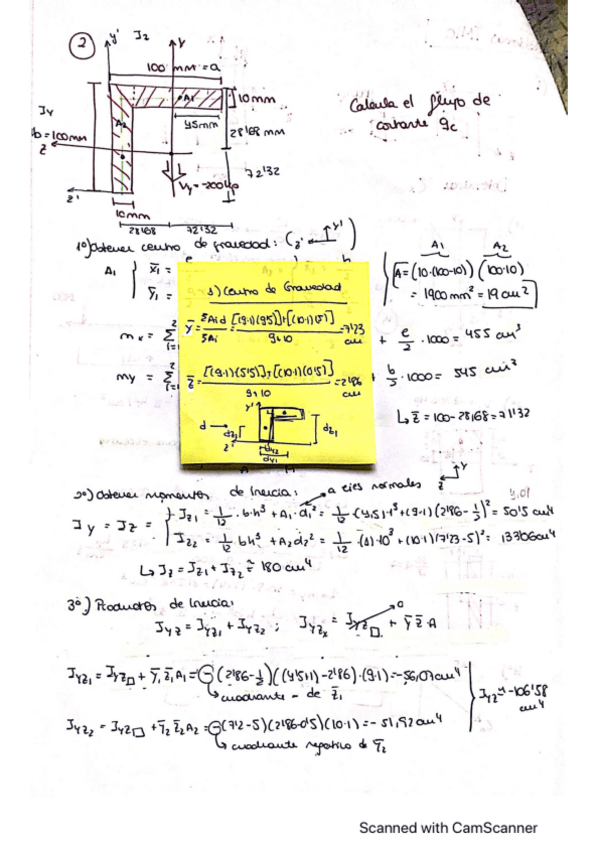 2
y'
Iz
y
100 mm = a
A1
10mm
Iy
A2
45mm
28'68 mm
b = 100mm
z
72'32
z'
Vy = -200 kp
10mm
28'68
72'32
Calcula el flujo de
cortante qc
1º) Obtener centro de gravedad: (z' y')
A1
A2
A1
x̄1 =
ȳ1 =
A = (10·(100-10)) (100·10)
= 1900 mm² = 19 cm²
mx = Σ
+ e/2 · 1000 = 455 cm³
my = Σ
+ b/2 · 1000 = 545 cm³
↳ z̄ = 100 - 28'68 = 71'32
1) Centro de Gravedad
ȳ = ΣAid/ΣAi = [(9·1)(9'5)]+[(10·1)(5)]/9+10 = 7'23 cm
z̄ = [(9·1)(5'5)]+[(10·1)(0'5)]/9+10 = 2'86 cm
y'
d →
dz2
dz1
z'
dy2
dy1
2º) Obtener momentos de Inercia:
a ejes normales
y
z
Iy = Iz =
Iz1 = 1/12 · b·h³ + A1·d1² = 1/12 · (9)·1³ + (9·1)(2'86 - 1/2)² = 50'15 cm4
Iz2 = 1/12 bh³ + A2d2² = 1/12 · (1)·10³ + (10·1)(7'23-5)² = 133'06 cm4
↳ Iz = Iz1 + Iz2 ≅ 180 cm4
3º) Productos de Inercia:
Iyz = Iyz1 + Iyz2 ; Iyzx = Iyz□ + ȳ z̄·A
0
Iyz1 = Iyz□ + ȳ1 z̄1 A1 = -(2'86 - 1/2)((4'5+1) - 2'86)·(9·1) = -56,07 cm4
↳ cuadrante - de z̄1
Iyz2 = Iyz□ + ȳ2 z̄2 A2 = -(7'2-5)(2'86-0'5)(10·1) = -51,92 cm4
↳ cuadrante negativo de ȳ2
Iyz ≈ -106'58 cm4
Scanned with CamScanner